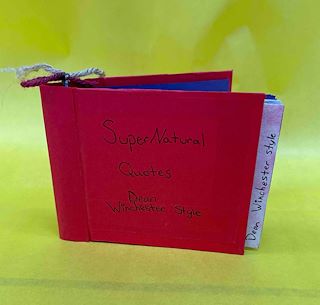 SuperNatural
Quotes
Dean
Winchester Style
Dean Winchester style